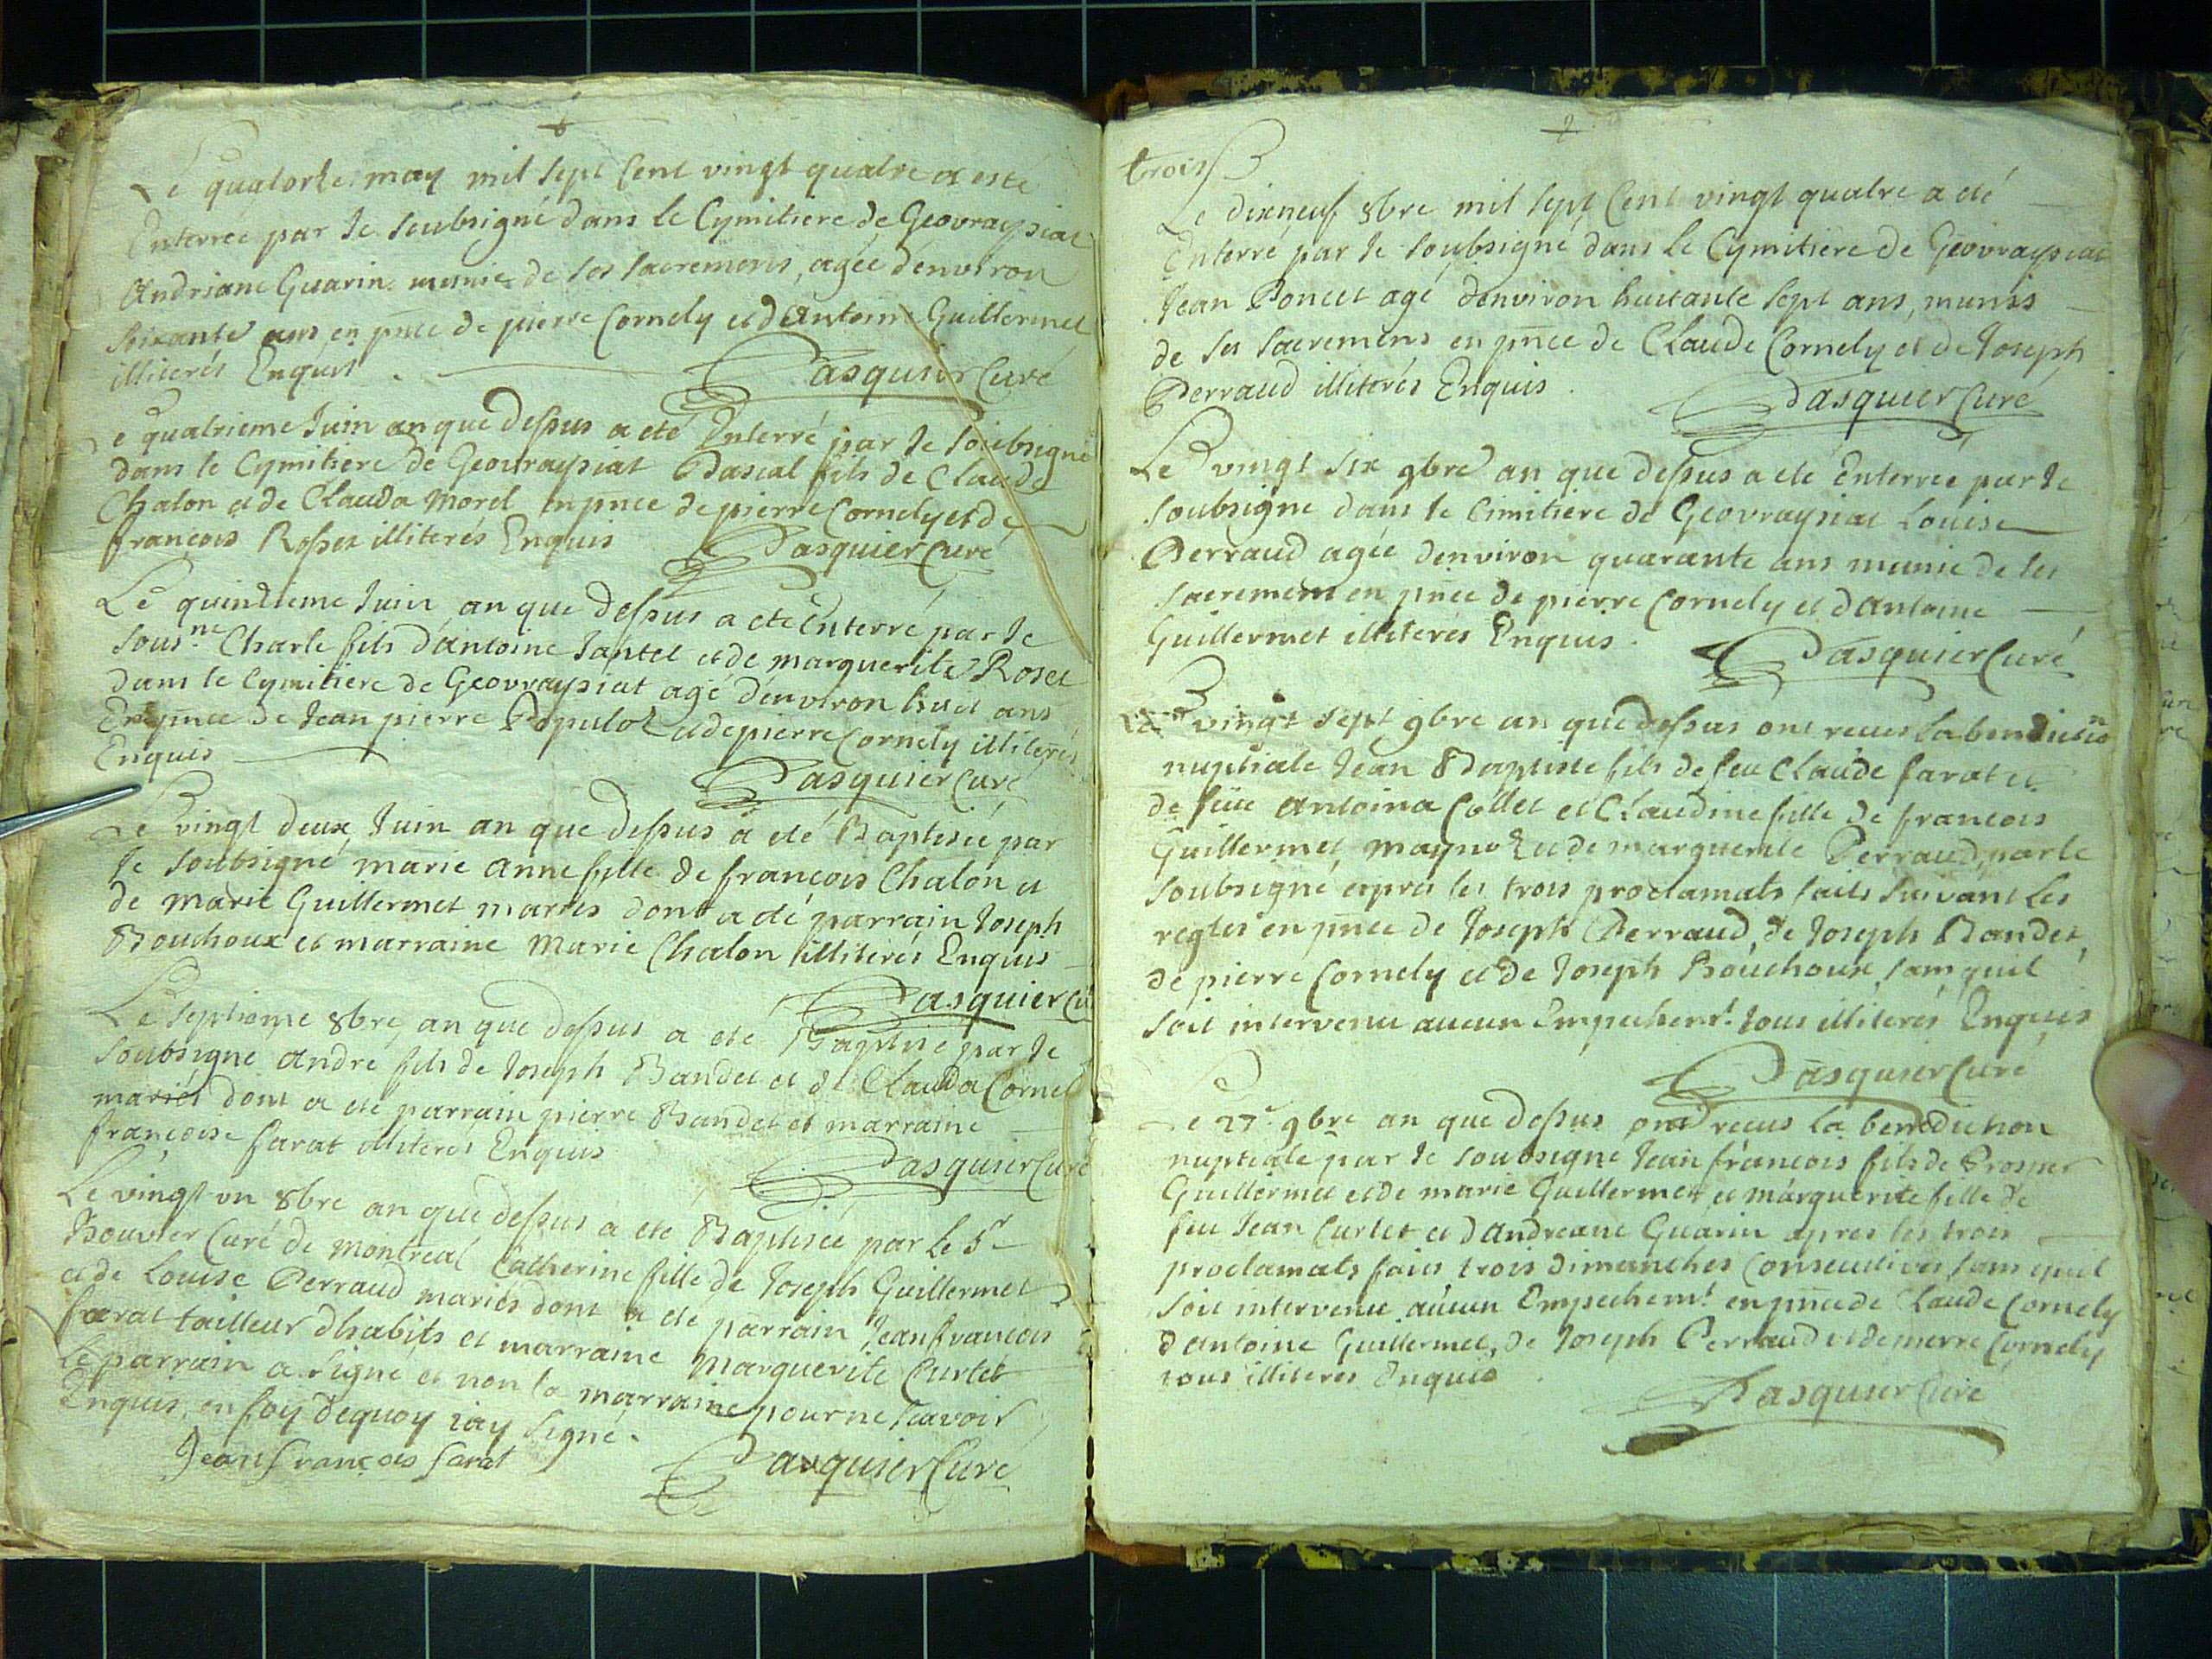 Le quatorze may mil sept cent vingt quatre a esté
Enterrée par Je soubsigné dans le Cymitiere de Geovraysiat
Andriane Guarin munie de ses sacremens, agée denviron
soixante ans en pnce de pierre Cornely et dAntoine Guillermet
illiterés Enquis.
Pasquier Curé
Le quatrieme Juin an que dessus a eté Enterré par Je soubsigné
dans le Cymitiere de Geovraysiat Pascal fils de Claude
Chalon et de Clauda Morel en pnce de pierre Cornely et de
françois Rosset illiterés Enquis
Pasquier Curé
Le quinzieme Juin an que dessus a eté Enterré par Je
Sous.né Charle fils d'antoine Jantet et de marguerite Roset
dans le Cymitiere de Geovraysiat agé d'environ huit ans
En pnce de Jean pierre Populoz et de pierre Cornely illiterés
Enquis
Pasquier Curé
Le vingt deux Juin an que dessus a eté Baptisée par
Je soubsigné marie Anne fille de francois Chalon et
de Marie Guillermet mariés dont a eté parrain Joseph
Bouchoux et marraine Marie Chalon illiterés Enquis
Pasquier Cu
Le septieme 8bre an que dessus a eté Baptisé par Je
soubsigné André fils de Joseph Bandet et de Clauda Cornel
mariés dont a eté parrain pierre Bandet et marraine
françoise farat illiterés Enquis
Pasquier Curé
Le vingt un 8bre an que dessus a eté Baptisée par le Sr
Bouvier Curé de Montreal Catherine fille de Joseph Guillermet
et de Louise Perraud mariés dont a eté parrain Jean francois
farat tailleur dhabits et marraine Marguerite Curtet
Le parrain a signé et non la marraine pour ne scavoir
Enquis, en foy dequoy iay signé.
Jean francois farat
Pasquier Curé
trois
Le dixneuf 8bre mil sept cent vingt quatre a eté
Enterré par Je soubsigné dans le Cymitiere de Geovraysiat
Jean Poncet agé denviron huitante sept ans, munis
de ses sacremens en pnce de Claude Cornely et de Joseph
Perraud illiterés Enquis.
Pasquier Curé
Le vingt six 9bre an que dessus a eté Enterrée par Je
soubsigné dans le Cimitiere de Geovraysiat Louise
Perraud agée denviron quarante ans munie de ses
sacremens en pnce de pierre Cornely et dAntoine
Guillermet illiterés Enquis.
Pasquier Curé
Le vingt sept 9bre an que dessus ont receu la benedictio
nuptiale Jean Baptiste fils de feu Claude farat et
de feüe Antoina Collet et Claudine fille de francois
Guillermet Maynoz et de marguerite Perraud, par le
soubsigné apres les trois proclamats faits suivant les
regles en pnce de Joseph Perraud, de Joseph Bandet,
de pierre Cornely et de Joseph Bouchoux, sans quil
soit intervenu aucun Empechemt. tous illiterés Enquis
Pasquier Curé
Le 27e 9bre an que dessus ont receus la benediction
nuptiale par Je soubsigné Jean francois fils de Prosper
Guillermet et de marie Guillermet et marguerite fille de
feu Jean Curtet et dAndreane Guarin apres les trois
proclamats faits trois dimanches consecutives, sans quil
soit intervenu aucun Empechemt. en pnce de Claude Cornely
dAntoine Guillermet, de Joseph Perraud et de pierre Cornely
tous illiterés Enquis
Pasquier Curé